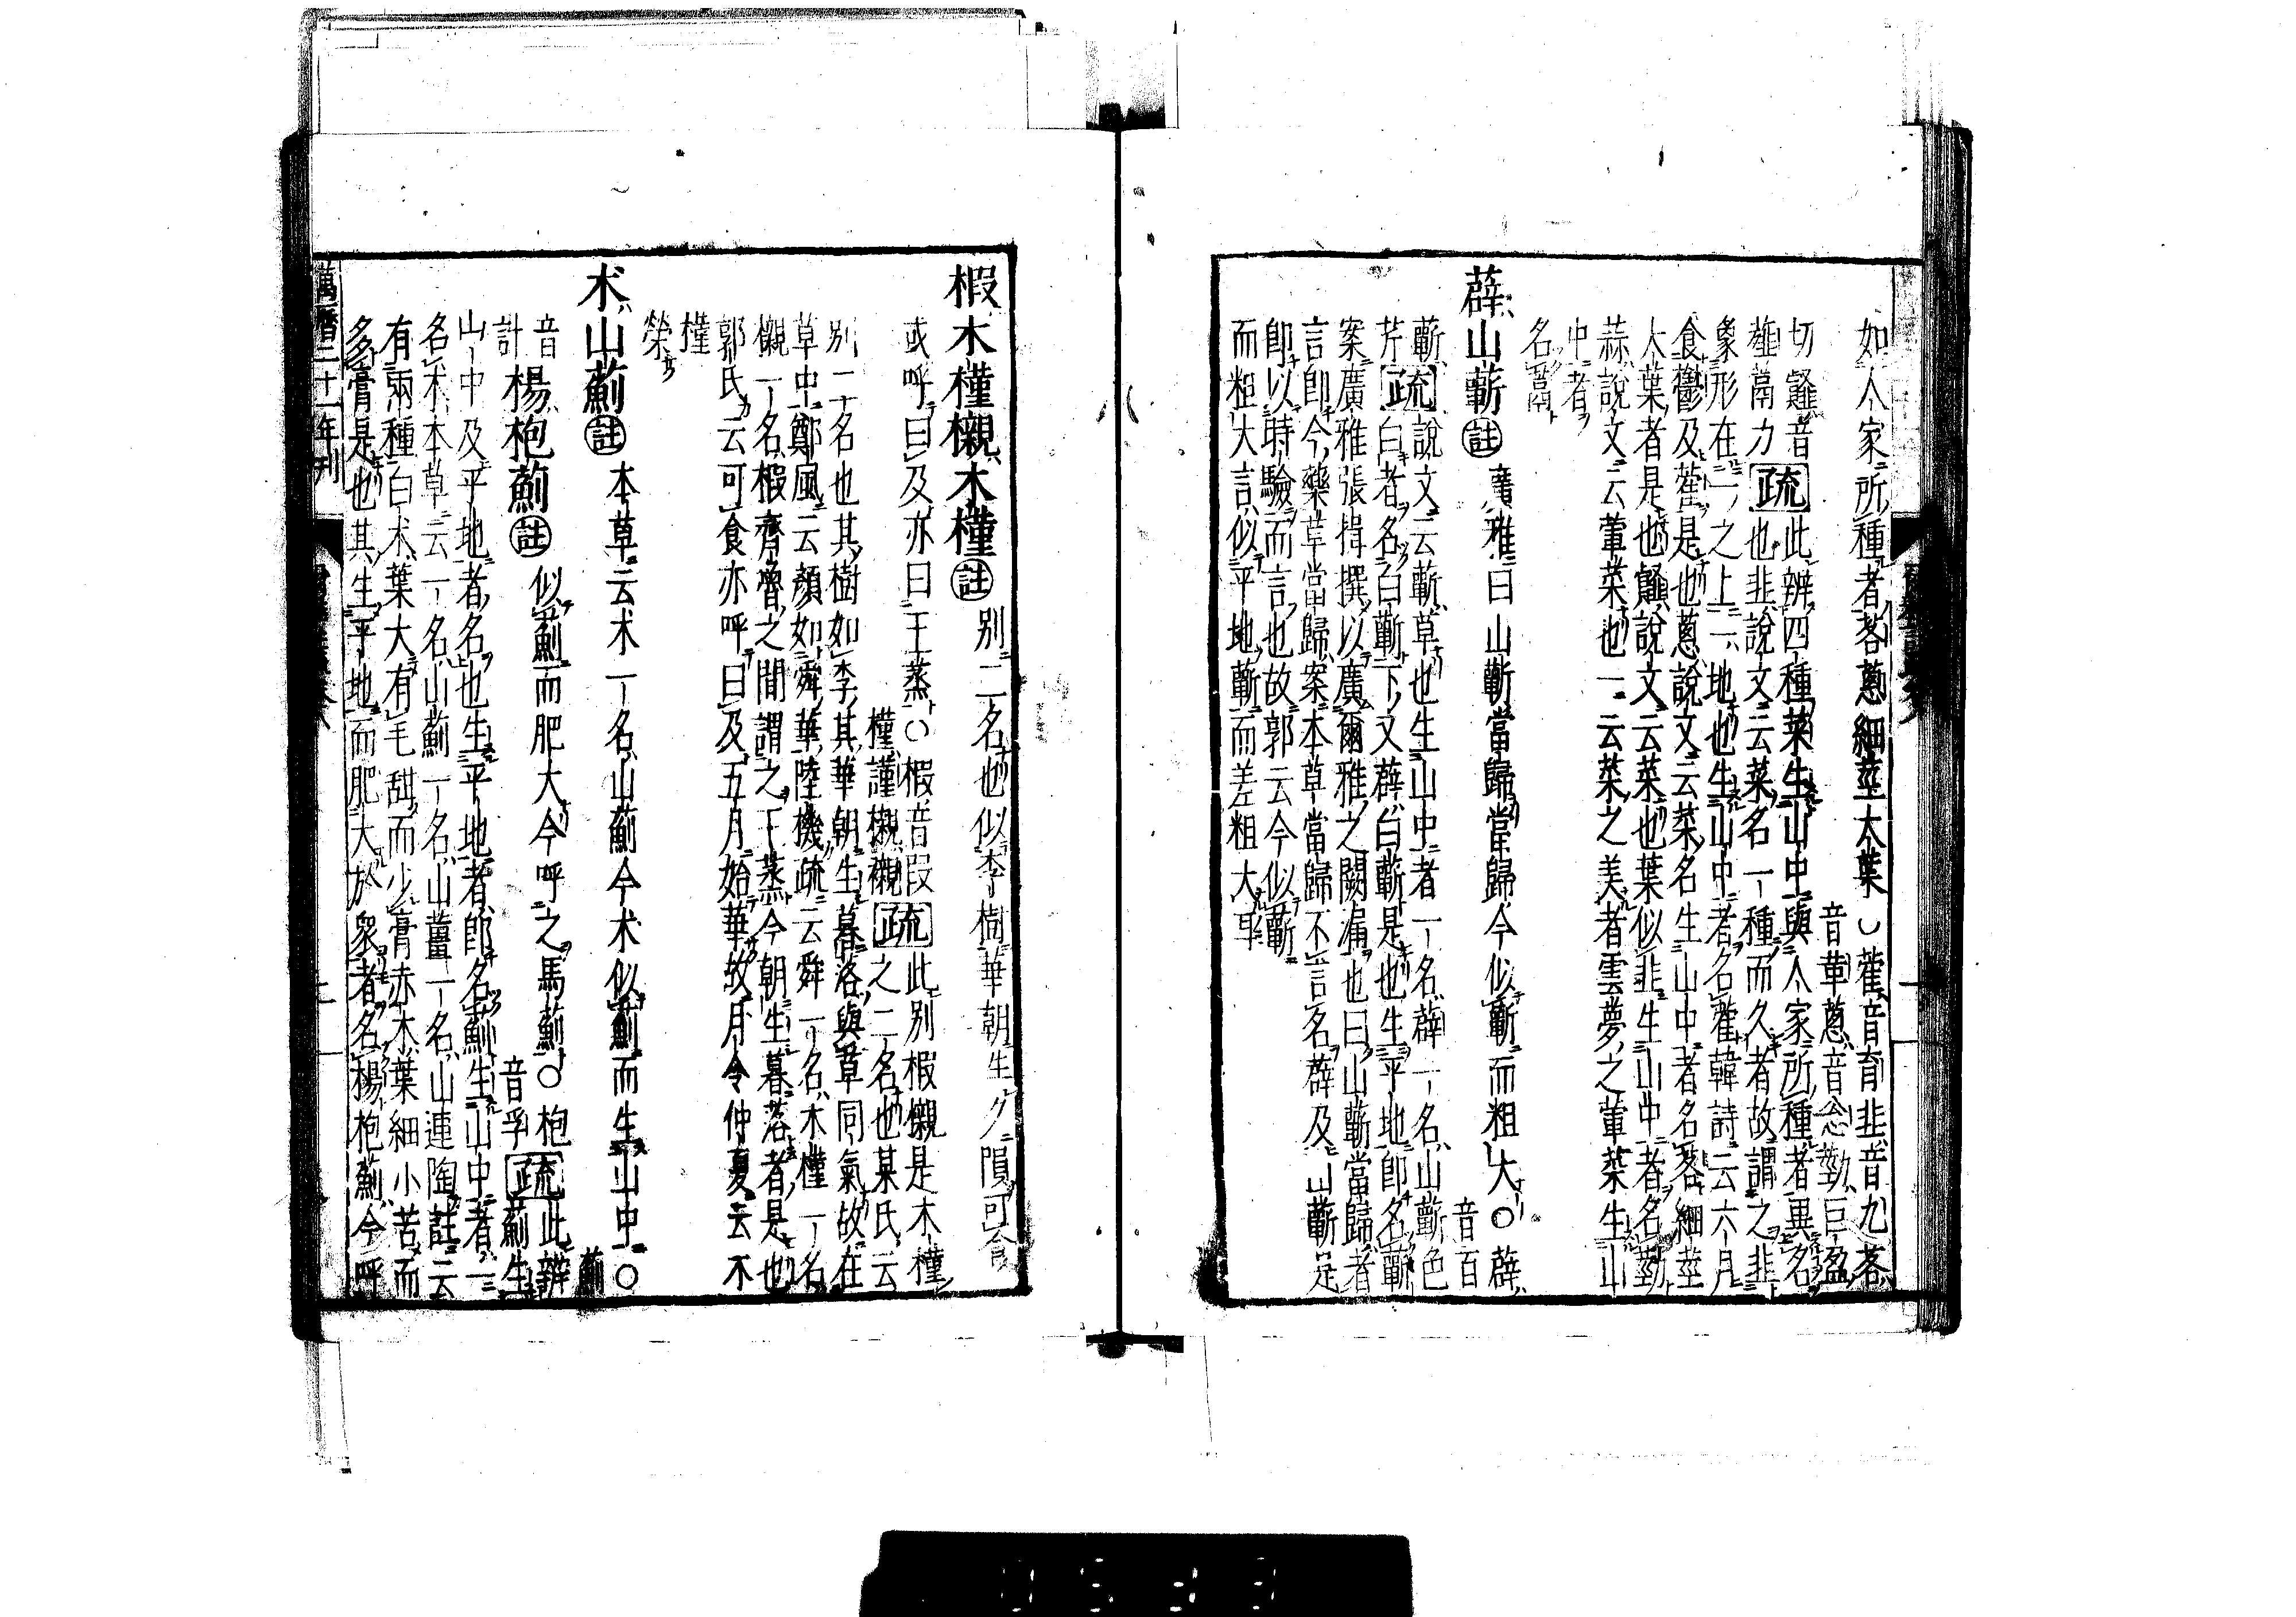 如人家所種者茖蔥細莖大葉○藿音育韭音九茖
音革蔥音忩葝巨盈
切䪥音
䪥鬲力疏此辨四種菜生山中與人家所種者異名
也韭說文云菜名一種而久者故謂之韭
象形在一之上一地也生山中者名藿韓詩云六月
食鬱及藿是也蔥說文云菜名生山中者名茖細莖
大葉者是也䪥說文云菜也葉似韭生山中者名葝
蒜說文云葷菜也一云菜之美者雲夢之葷菜生山
中者
名蒚
薜山蘄註廣雅曰山蘄當歸當歸今似蘄而粗大○薜
音百
蘄
芹疏說文云蘄草也生山中者一名薜一名山蘄色
白者名白蘄下文薜白蘄是也生平地即名蘄
案廣雅張揖撰以廣爾雅之闕漏也曰山蘄當歸者
言即今藥草當歸案本草當歸不言名薜及山蘄是
即以時驗而言也故郭云今似蘄
而粗大言似平地蘄而差粗大耳
椵木槿櫬木槿註別二名也似李樹華朝生夕隕可食
或呼曰及亦曰王蒸○椵音假
槿謹櫬襯疏此別椵櫬是木槿
之二名也某氏云
別二名也其樹如李其華朝生暮落與草同氣故在
草中鄭風云顏如舜華陸機疏云舜一名木槿一名
櫬一名椵齊魯之間謂之王蒸今朝生暮落者是也
郭氏云可食亦呼曰及五月始華故月令仲夏云木
槿
榮
朮山薊註本草云朮一名山薊今朮似薊而生山中○
薊
音
計楊枹薊註似薊而肥大今呼之馬薊○枹
音孚疏此辨
薊生
山中及平地者名也生平地者即名薊生山中者一
名朮本草云一名山薊一名山薑一名山連陶註云
有兩種白朮葉大有毛甜而少膏赤朮葉細小苦而
多膏是也其生平地而肥大於衆者名楊枹薊今呼
萬曆二十一年刊